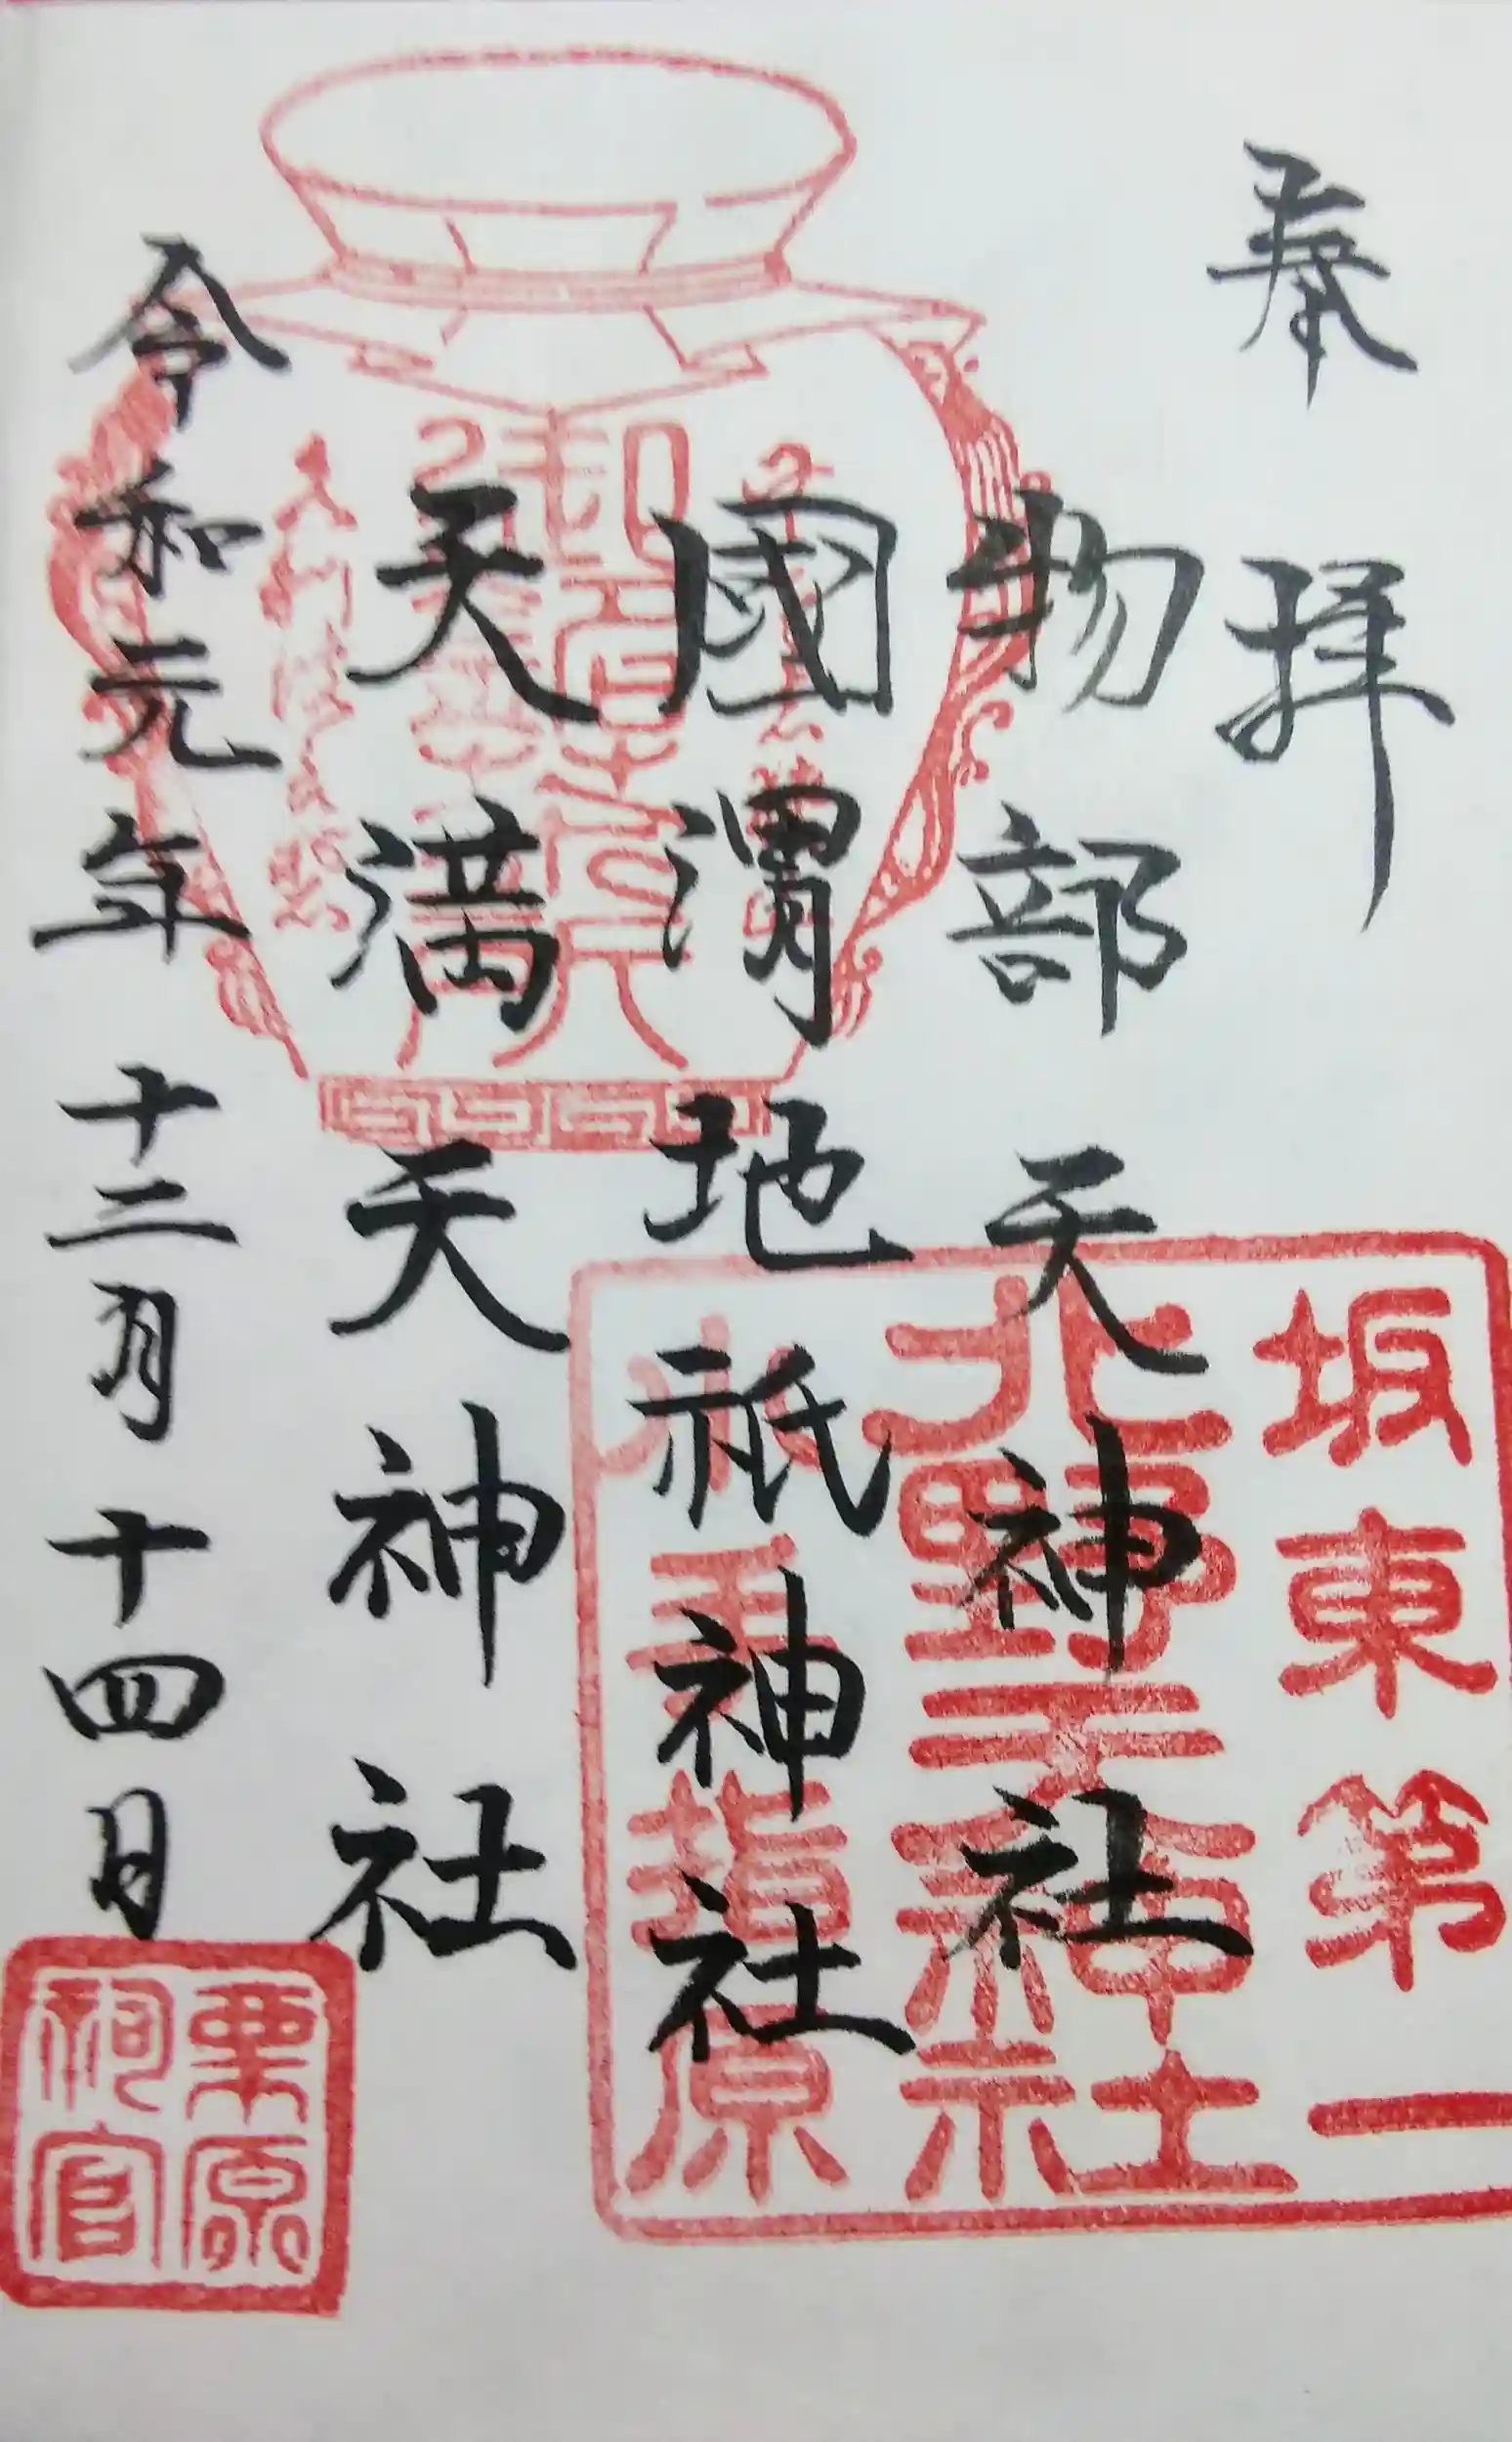 奉拝
物部天神社
國渭地祇神社
天満天神社
令和元年十二月十四日
坂東第一
北野天神社
栗原
祠官